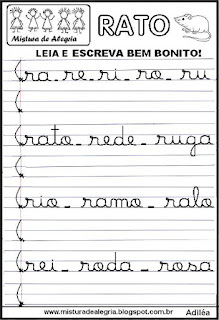 RATO
Mistura de Alegria
LEIA E ESCREVA BEM BONITO!
ra_re_ri_ro_ru
rato_rede_ruga
rio_ramo_ralo
rei_roda_rosa
www.misturadealegria.blogspot.com.br Adiléa